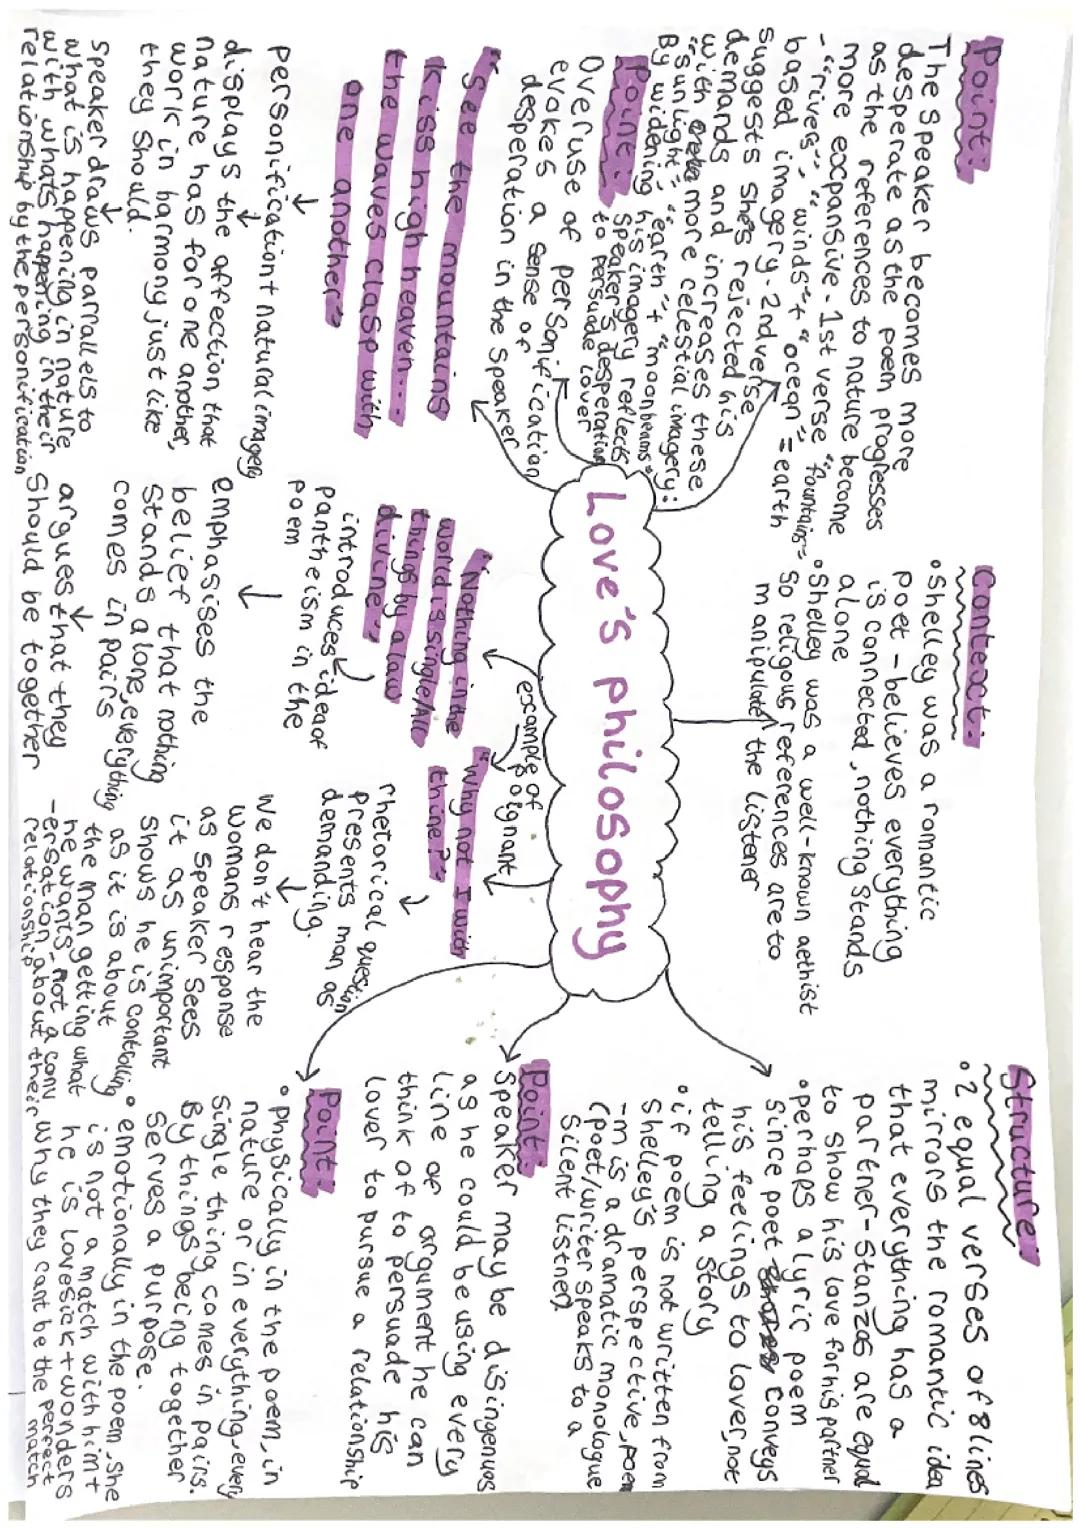 Point:
The speaker becomes more
desperate as the poem progresses
as the references to nature become
more expansive. 1st verse "fountains"
- "rivers", "winds" + "ocean" = earth
based imagery. 2nd verse
suggests she's rejected his
demands and increases these
with more celestial imagery:
"sunlight", "earth" + "moonbeams"
By widening his imagery reflects
speaker's desperation
to persuade lover
Point:
Overuse of personification
evokes a sense of
desperation in the speaker
"See the mountains
kiss high heaven...
the waves clasp with
one another"
personification + natural imagery
displays the affection that
nature has for one another,
work in harmony just like
they should.
Speaker draws parrallels to
what is happening in nature
with whats happening in their
relationship by the personification
Context:
• Shelley was a romantic
poet - believes everything
is connected, nothing stands
alone
• Shelley was a well-known aethist
so religous references are to
manipulate the listener
Love's philosophy
example of poignant
"Nothing in the
world is single/All
things by a law
divine"
introduces idea of
pantheism in the
poem
emphasises the
belief that nothing
stands alone, everything
comes in pairs
argues that they
should be together
"Why not I with
thine?"
rhetorical question
presents man as
demanding.
We don't hear the
womans response
as speaker sees
it as unimportant
shows he is controlling
as it is about
the man getting what
he wants - not a conv
-ersation about their
relationship
Structure:
• 2 equal verses of 8 lines
mirrors the romantic idea
that everything has a
partner - stanzas are equal
to show his love for his partner
• perhaps a lyric poem
since poet conveys
his feelings to lover, not
telling a story
• if poem is not written from
Shelley's perspective, poem
-m is a dramatic monologue
(poet/writer speaks to a
silent listner)
Point:
Speaker may be disingenues
as he could be using every
line of argument he can
think of to persuade his
lover to pursue a relationship
Point:
• physically in the poem, in
nature or in everything, every
single thing comes in pairs.
By things being together
serves a purpose.
• emotionally in the poem, she
is not a match with him +
he is lovesick + wonders
why they cant be the perfect
match